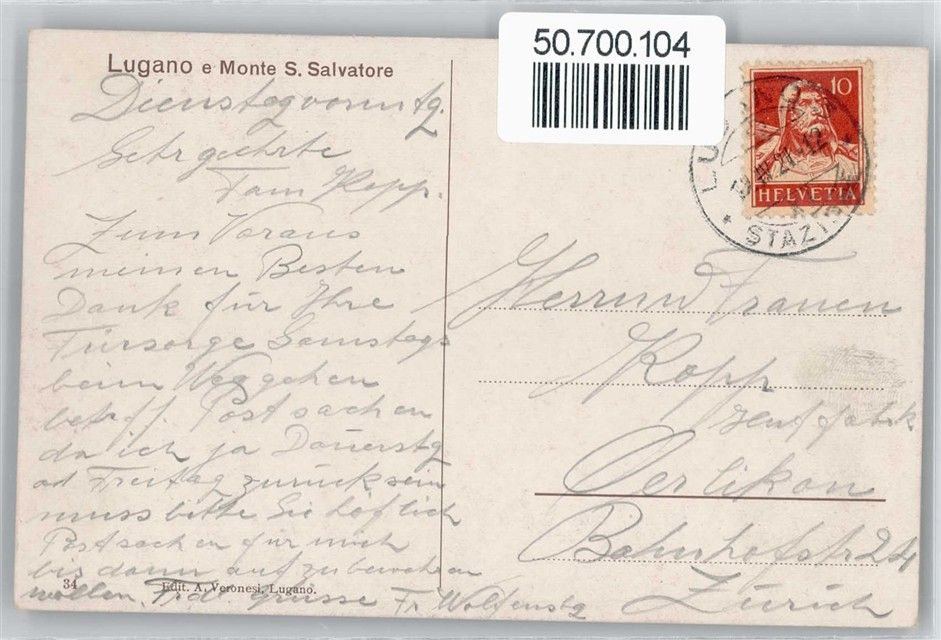 50.700.104
Lugano e Monte S. Salvatore
10
HELVETIA
STAZIONE
Dienstagvormtg.
Sehr geehrte
Fam Kopp.
Zum Voraus
meinen Besten
Dank für Ihre
Fürsorge Samstags
beim Weggehen
betreff. Postsachen
da ich ja Donerstg
od Freitag zurück sein
muss bitte Sie höflich
Postsachen für mich
bis dann aufzubewahren
wollen. Grüsse Fr. Wolfensbg
34 Edit. A. Veronesi, Lugano.
Herrn und Frauen
Kopp
Oerlikon
Bahnhofstr 24
Zürich